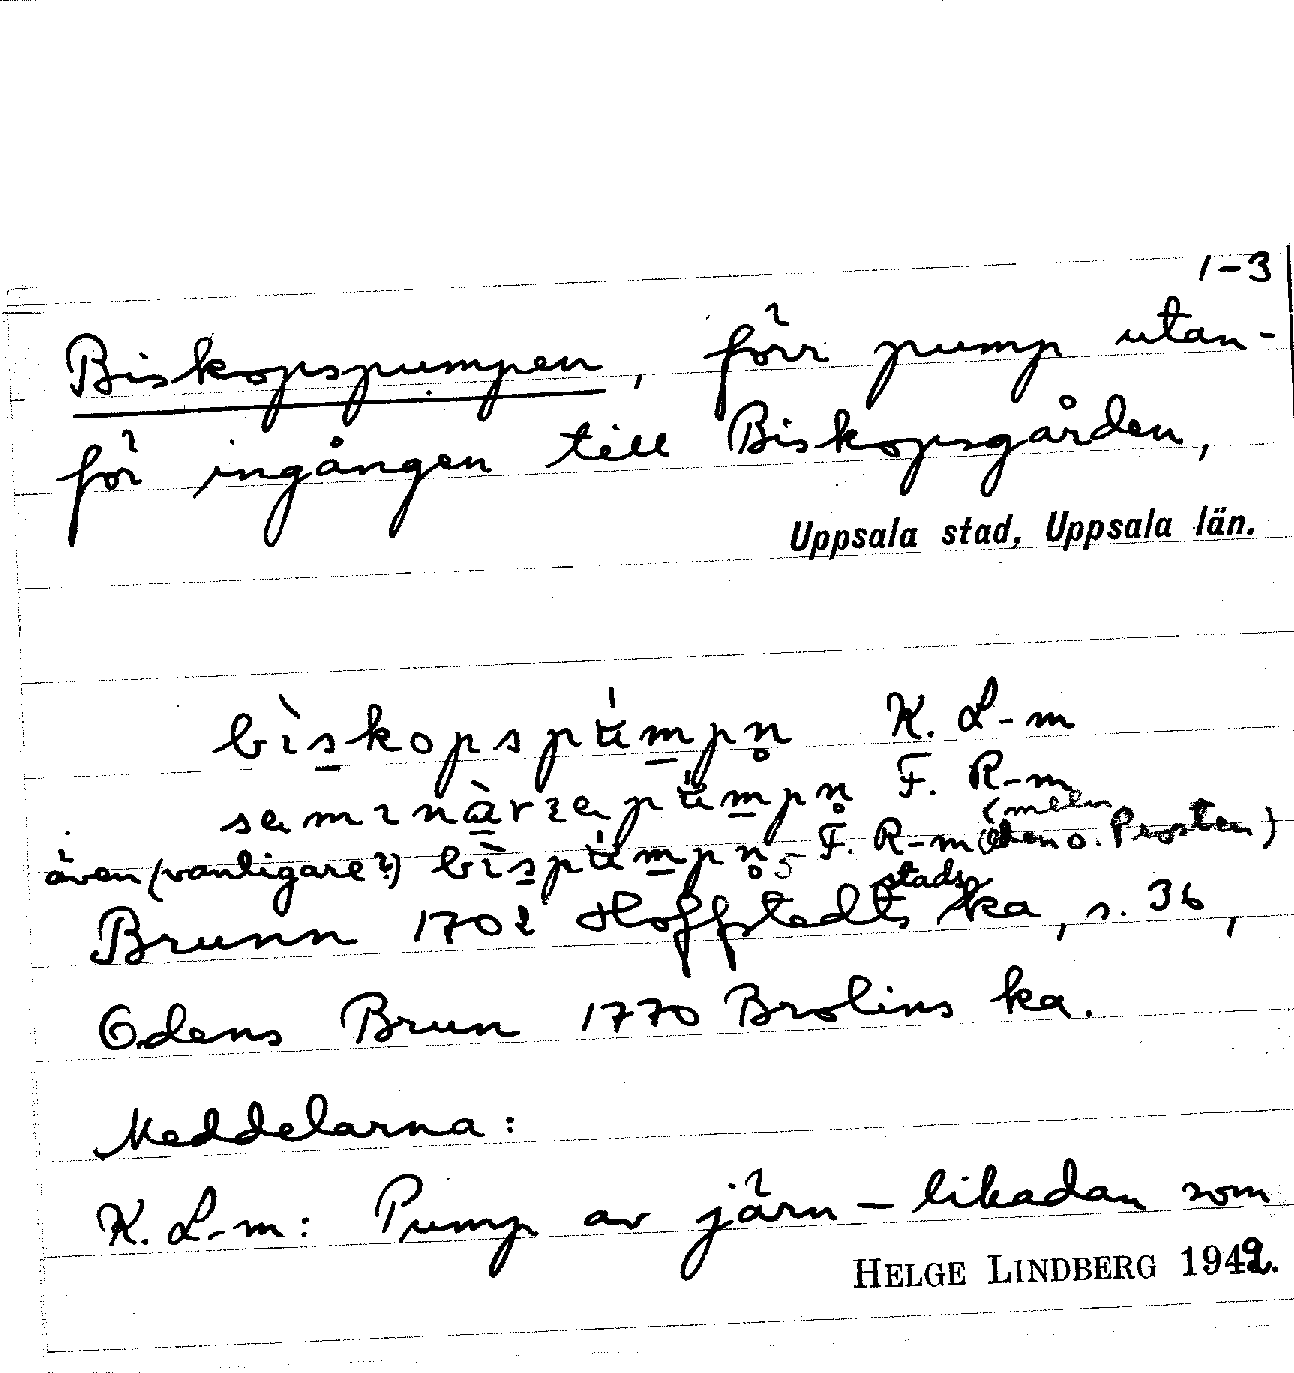 1-3
Biskopspumpen, förr pump utan-
för ingången till Biskopsgården,
Uppsala stad, Uppsala län.
bìskopspú̈mpn̥ K. L-m
semɩnàrɩepú̈mpn̥ F. R-m
(meln
även (vanligare?) bìspú̈mpn̥ F. R-m den o. Prosten)
stads
Brunn 1702 Hoffstedts ka, s. 36,
Odens Brun 1770 Brolins ka.
Meddelarna:
K. L-m: Pump av järn – likadan som
HELGE LINDBERG 1942.